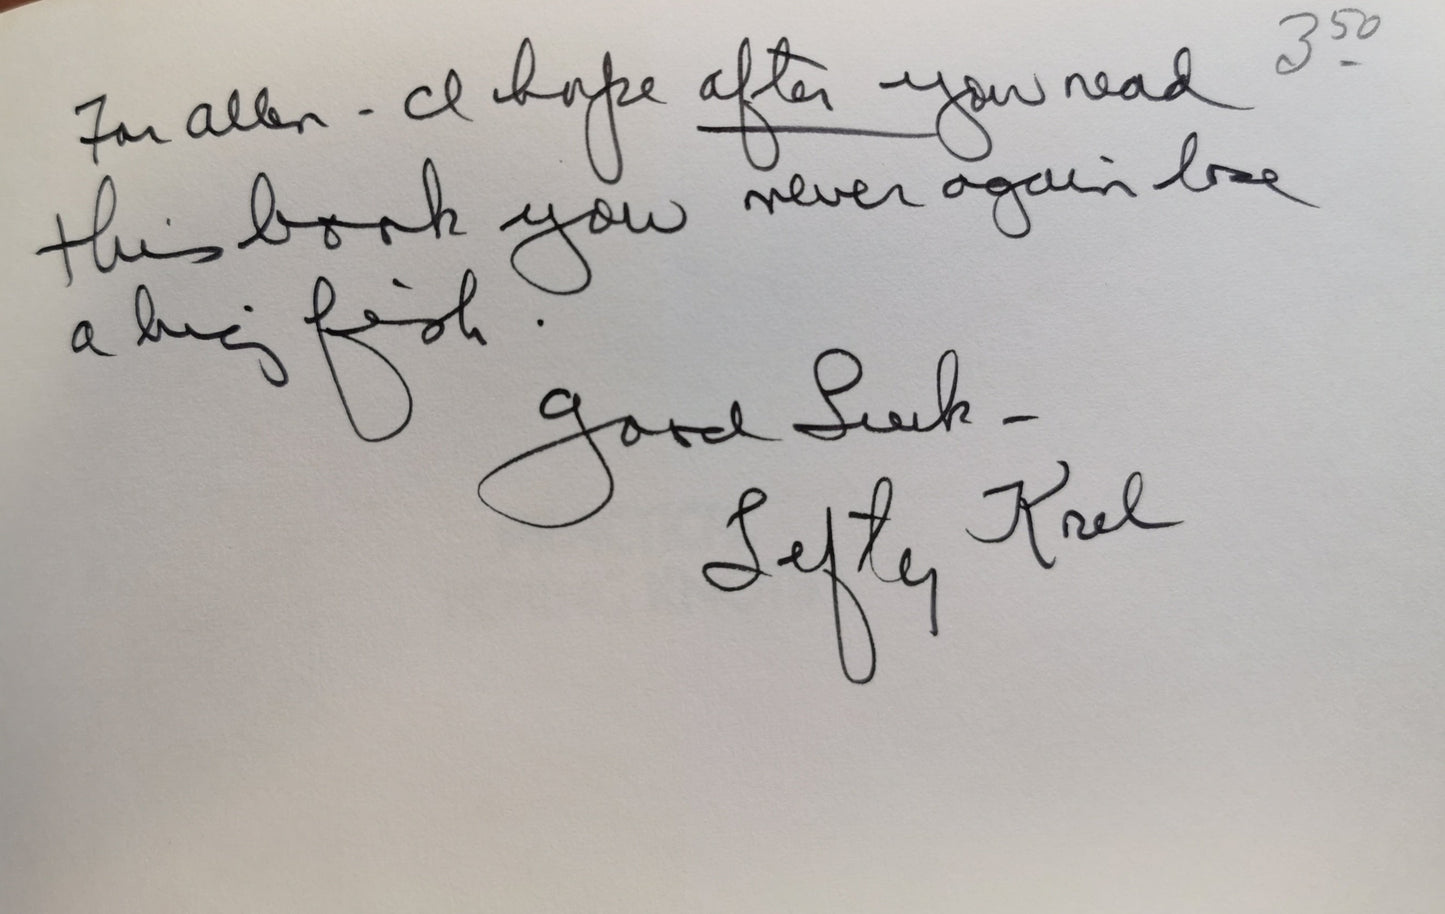 For Allen - I hope after you read
3 50
this book you never again lose
a big fish.
Good Luck -
Lefty Kreh